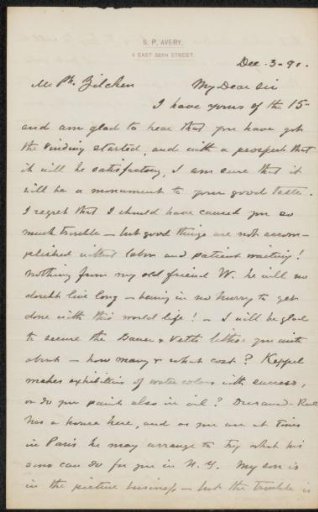 S. P. AVERY.
4 EAST 38TH STREET.
Dec. 3 - 90.
Mr Ph. Zilcken My Dear Sir
I have yours of the 15-
and am glad to hear that you have got
the binding started, and with a prospect that
it will be satisfactory, I am sure that it
will be a monument to your good taste.
I regret that I should have caused you so
much trouble - but good things are not accom-
plished without labor and patient waiting!
nothing from my old friend W. he will no
doubt live long - being in no hurry to get
done with this world life! - I will be glad
to secure the letters you write
about - how many & what cost? Keppel
makes exhibitions of water colors with success,
or do you paint also in oil? Durand-Ruel
has a house here, and as you are at times
in Paris he may arrange to try what his
sons can do for you in N. Y. My son is
in the picture business - but the trouble is